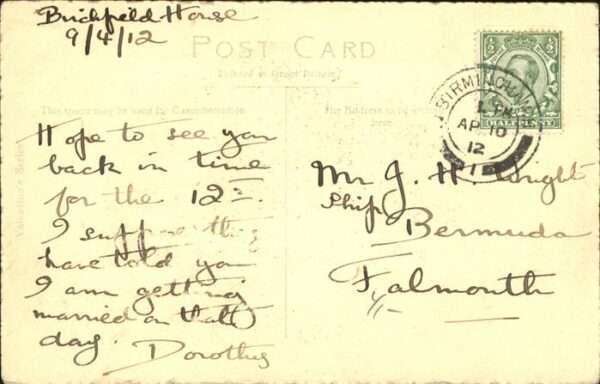 Birchfield House
9/4/12
POST CARD
Printed in Great Britain
This space may be used for Communication
The Address to be
Valentine's Series
BIRMINGHAM
1. PM
AP 10
12
1
HALFPENNY
Hope to see you
back in time
for the 12th.
I suppose they
have told you
I am getting
married on that
day. Dorothy
Mr J. H. Wright
Ship
Bermuda
Falmouth